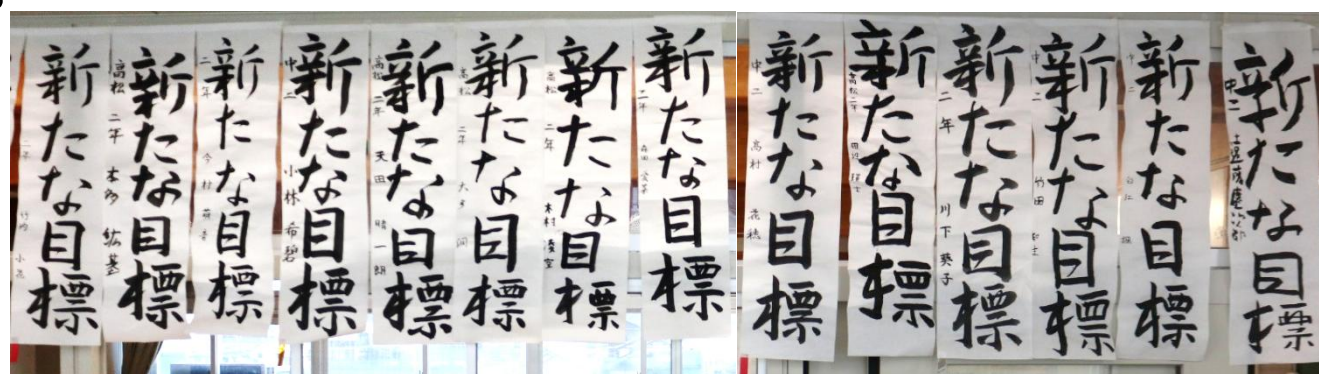 新たな目標
新たな目標
高松 二年 本多
新たな目標
二年 今村
新たな目標
中二 小林 希碧
新たな目標
高松 二年 天田 晴一朗
新たな目標
高松 二年
新たな目標
高松 二年 木村 湊空
新たな目標
二年 森田
新たな目標
中二 高村 花穂
新たな目標
高松 二年
新たな目標
二年 川下 葵子
新たな目標
中二 竹田
新たな目標
中二
新たな目標
中二